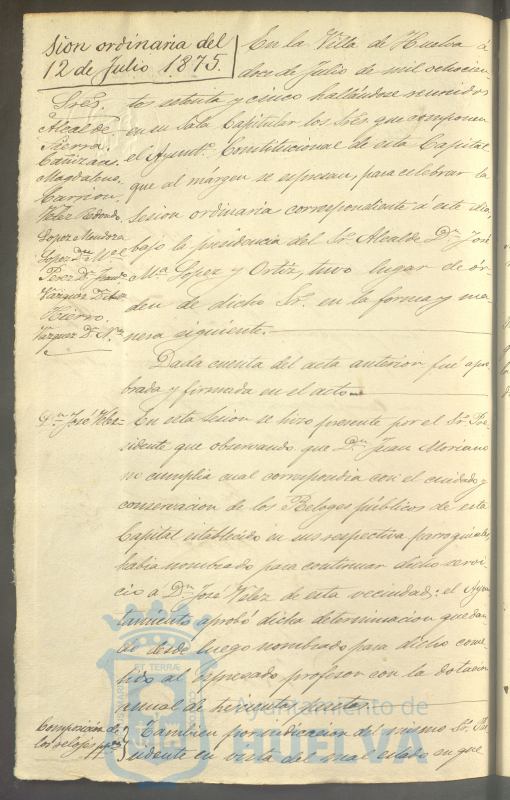 sion ordinaria del
12 de Julio 1875.
Sres.
Alcalde
Sierra
Cañizares
Magdaleno
Carrion
Velez Redondo
Lopez Mendoza
Lopez Dn. Ml.
Perez Dn.
Vazquez Dn.
Hierro
Vazquez Dn. N.
En la Villa de Huelva á
doce de Julio de mil ochocien
tos setenta y cinco hallandose reunidos
en su Sala Capitular los Sres. que componen
el Ayuntº. Constitucional de esta Capital
que al márgen se espresan, para celebrar la
sesion ordinaria correspondiente á este dia
bajo la presidencia del Sr. Alcalde Dn. José
Mª Lopez y Ortiz, tuvo lugar de ór
den de dicho Sr. en la forma y ma
nera siguiente.
Dada cuenta del acta anterior fué apro
bada y firmada en el acto
Dn. José Velez
En esta sesion se hizo presente por el Sr. Pre
sidente que observando que Dn. Juan Moriano
no cumplia cual correspondia con el cuidado y
conservacion de los Reloges públicos de esta
Capital establecido en sus respectiva parroquiales,
habia nombrado para continuar dicho servi
cio á Dn. José Velez de esta vecindad: el Ayun
tamiento aprobó dicha determinacion quedan
do desde luego nombrado para dicho come
tido al espresado profesor con la dotacion
anual de
Composicion de
los relojes
Tambien por indicacion del mismo Sr. Pre
sidente en vista del mal estado en que
ET TERRÆ
Ayuntamiento de
HUELVA